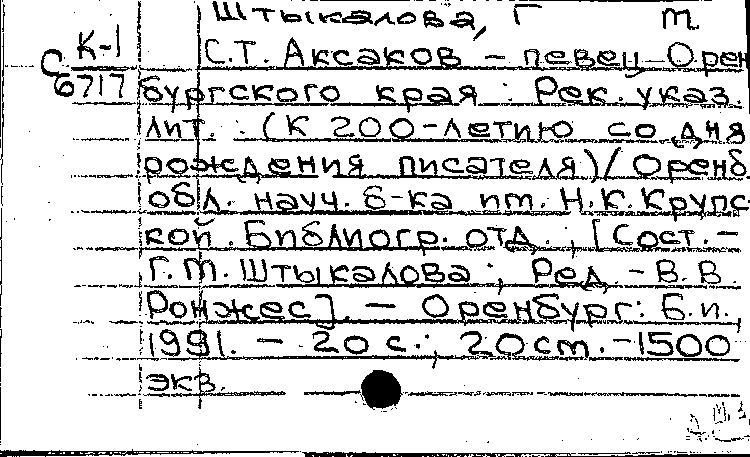 Штыкалова, Г М.
К-1
С 6717
С.Т. Аксаков – певец Орен
бургского края : Рек. указ.
лит. : (К 200-летию со дня
рождения писателя) / Оренб.
обл. науч. б-ка им. Н.К. Крупс
кой. Библиогр. отд. ; [Сост. –
Г.М. Штыкалова ; Ред. – В.В.
Ронжес]. – Оренбург: Б.и.,
1991. – 20 с. ; 20 см. – 1500
экз.